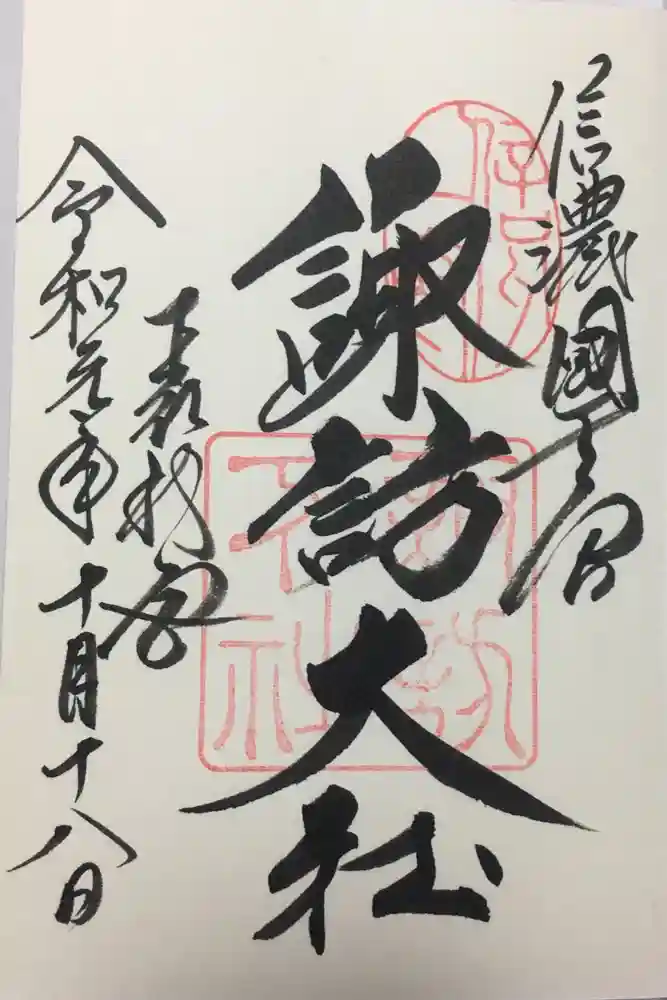 信濃國一宮
諏訪大社
秋宮
令和元年十月十八日